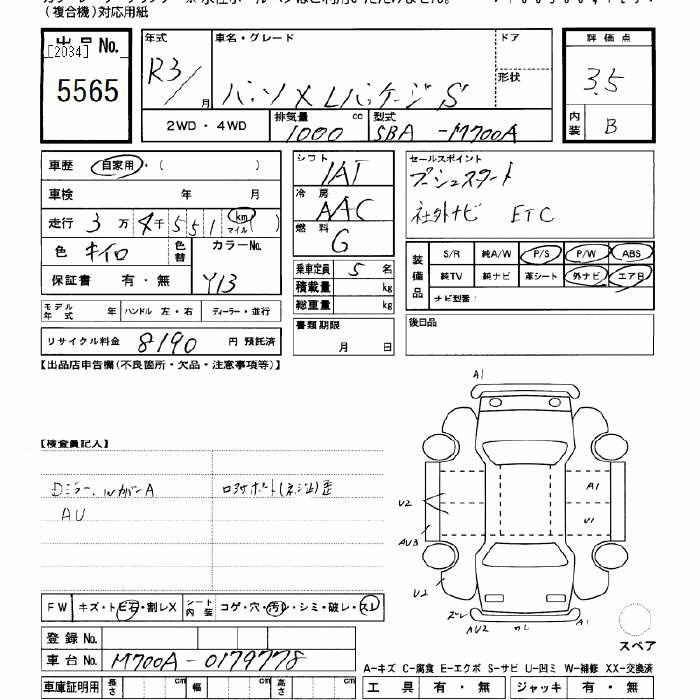 (複合機)対応用紙
出品 No.
[2034]
5565
年式
R3/
月
車名・グレード
パッソ X Lパッケージ S
ドア
形状
評価点
3.5
内装
B
2WD・4WD
排気量
1000
cc
型式
5BA -M700A
車歴
自家用・( )
車検 年 月
走行 3万4千551 km マイル ( )
色 キイロ
色替
カラーNo.
Y13
保証書 有・無
シフト
IAT
冷房
AAC
燃料
G
乗車定員 5 名
積載量 kg
総重量 kg
セールスポイント
プッシュスタート
社外ナビ ETC
装備品
S/R 純A/W P/S P/W ABS
純TV 純ナビ 革シート 外ナビ エアB
ナビ型番:
モデル年式 年
ハンドル 左・右
ディーラー・並行
リサイクル料金 8190 円 預託済
書類期限
月 日
後日品
【出品店申告欄(不良箇所・欠品・注意事項等)】
【検査員記入】
A1
A1
U2
U1
AU3
U2
ズレ
AU2
A1
AU
FW キズ・トビ石・割レX
シート内装 コゲ・穴・汚レ・シミ・破レ・スレ
スペア
登録 No.
車台 No. M700A-0179778
A-キズ C-腐食 E-エクボ S-サビ U-凹ミ W-補修 XX-交換済
車庫証明用 長さ cm 幅 cm 高さ cm
工具 有・無 ジャッキ 有・無